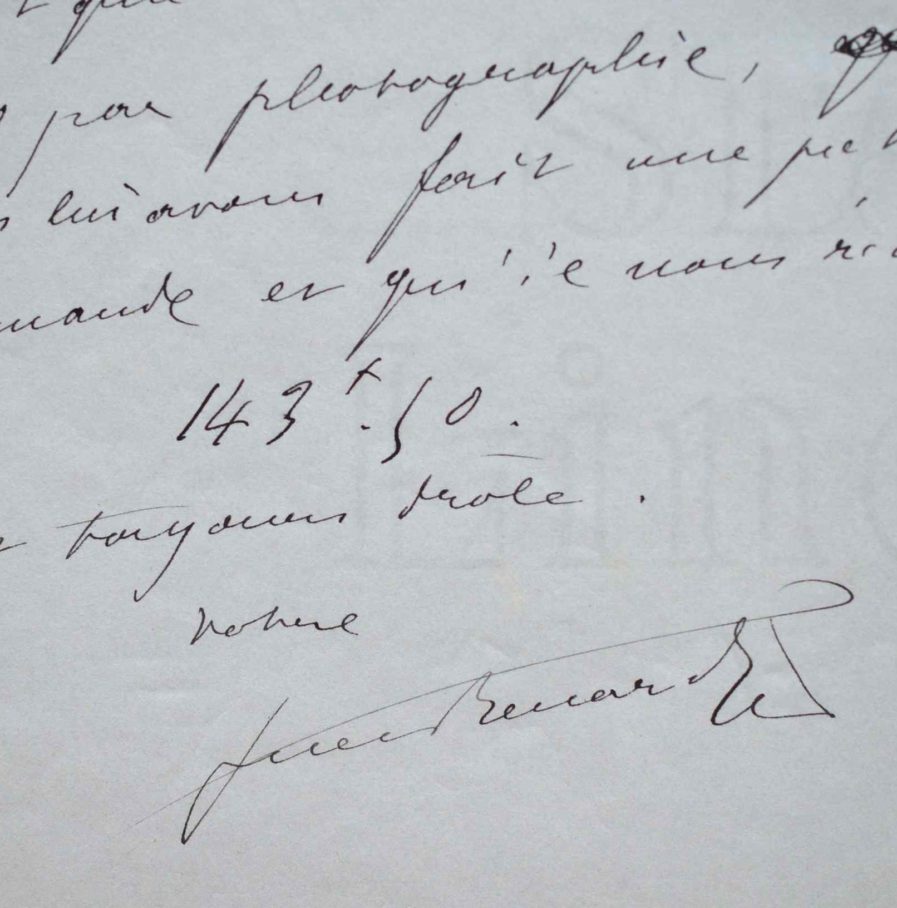 que
par photographie,
lui avons fait une pet
mande et qu'il nous ré
143 f. 50.
toujours drôle.
Votre
Jules Renard